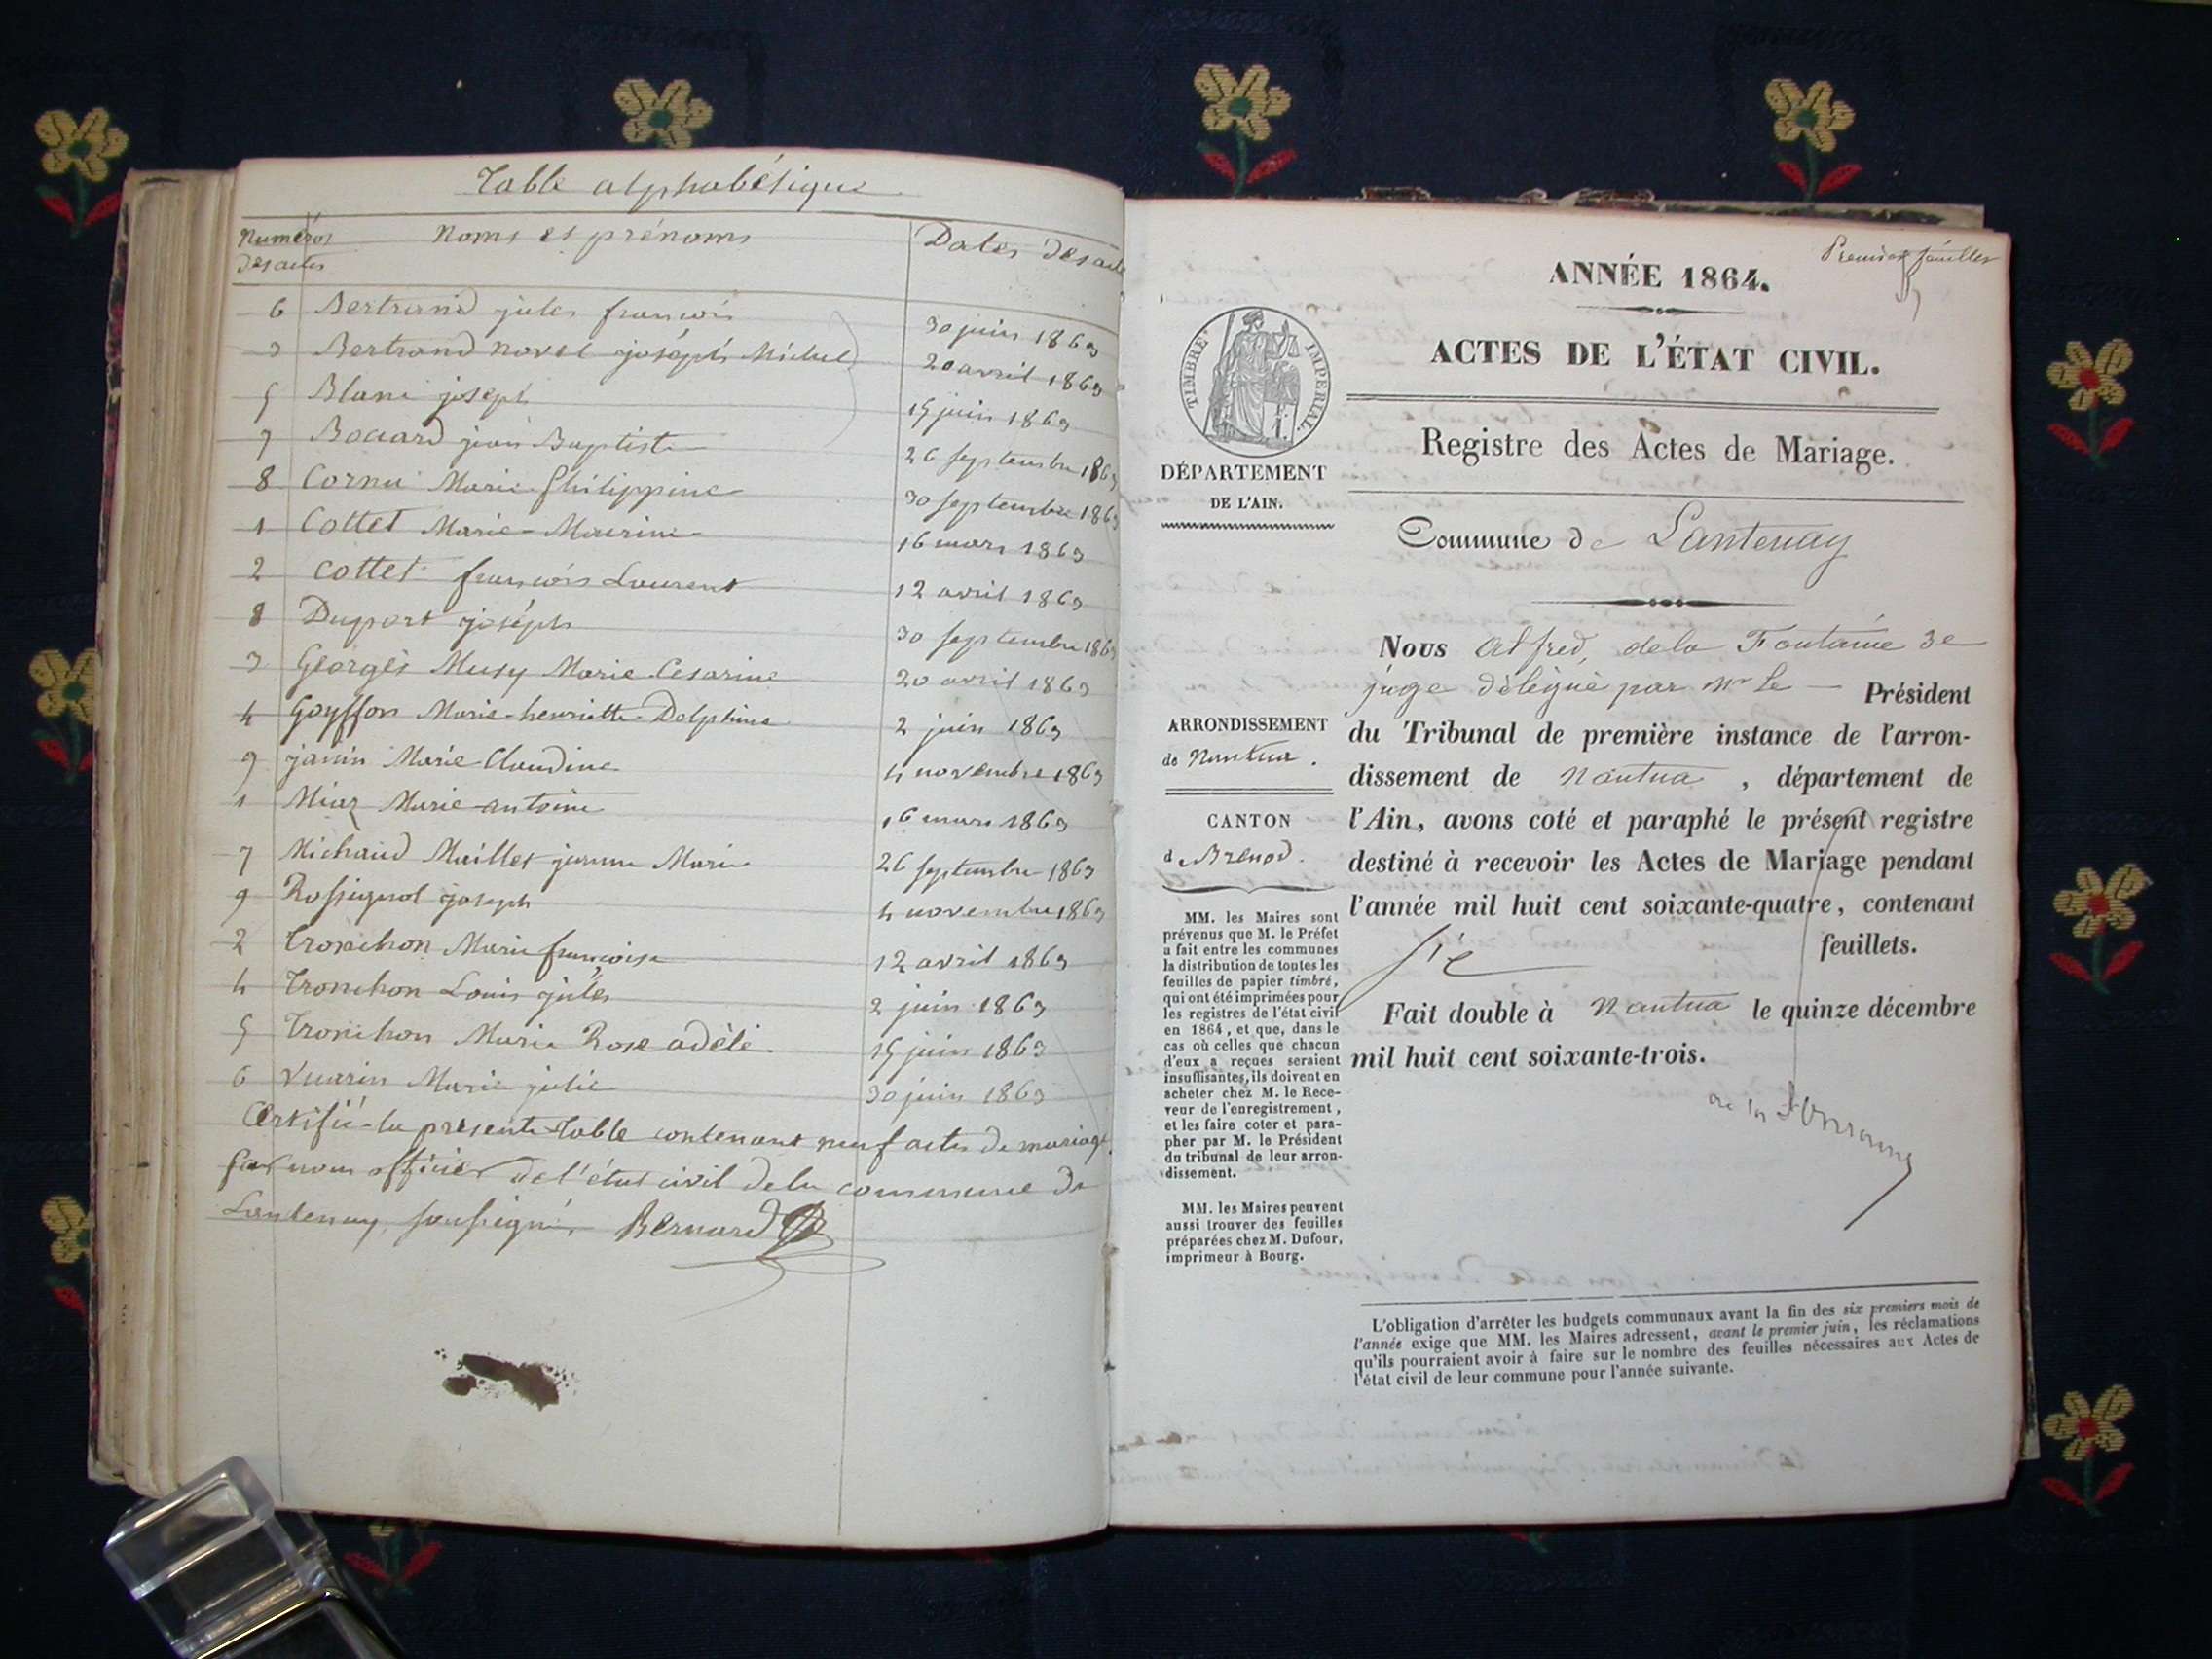 Table alphabétique
Numéros des actes Noms et prénoms Dates des actes
6 Bertrand jules françois 30 juin 1863
3 Bertrand novel joséph Michel 20 avril 1863
5 Blanc joseph 15 juin 1863
7 Bocard jean Baptiste 26 septembre 1863
8 Cornu Marie Philippine 30 septembre 1863
1 Cottet Marie-Maurine 16 mars 1863
2 Cottet françois Laurent 12 avril 1863
8 Duport joséph 30 septembre 1863
3 Georges Musy Marie Cesarine 20 avril 1863
4 Goyffon Marie-henriette Delphine 2 juin 1863
9 janin Marie Claudine 4 novembre 1863
1 Marie antoine 16 mars 1863
7 Michaud Maillet Marie 26 septembre 1863
9 Rossignol joseph 4 novembre 1863
2 Tronchon Marie françoise 12 avril 1863
4 Tronchon Louis jules 2 juin 1863
5 Tronchon Marie Rose adèle 15 juin 1863
6 Vuarin Marie julie 30 juin 1863
Certifié la présente table contenant neuf actes de mariage
par nous officier de l'état civil de la commune de
Lantenay, soussigné, Bernard
Premier feuillet
ANNÉE 1864.
ACTES DE L'ÉTAT CIVIL.
TIMBRE IMPERIAL.
Registre des Actes de Mariage.
DÉPARTEMENT
DE L'AIN.
Commune de Lantenay
Nous Alfred, de la Fontaine 3e
juge délégué par Mr le — Président
du Tribunal de première instance de l'arron-
dissement de Nantua, département de
l'Ain, avons coté et paraphé le présent registre
destiné à recevoir les Actes de Mariage pendant
l'année mil huit cent soixante-quatre, contenant
feuillets.
Fait double à Nantua le quinze décembre
mil huit cent soixante-trois.
ARRONDISSEMENT
de Nantua.
CANTON
de Brenod.
MM. les Maires sont
prévenus que M. le Préfet
a fait entre les communes
la distribution de toutes les
feuilles de papier timbré,
qui ont été imprimées pour
les registres de l'état civil
en 1864, et que, dans le
cas où celles que chacun
d'eux a reçues seraient
insuffisantes, ils doivent en
acheter chez M. le Rece-
veur de l'enregistrement,
et les faire coter et para-
pher par M. le Président
du tribunal de leur arron-
dissement.
MM. les Maires peuvent
aussi trouver des feuilles
préparées chez M. Dufour,
imprimeur à Bourg.
L'obligation d'arrêter les budgets communaux avant la fin des six premiers mois de
l'année exige que MM. les Maires adressent, avant le premier juin, les réclamations
qu'ils pourraient avoir à faire sur le nombre des feuilles nécessaires aux Actes de
l'état civil de leur commune pour l'année suivante.